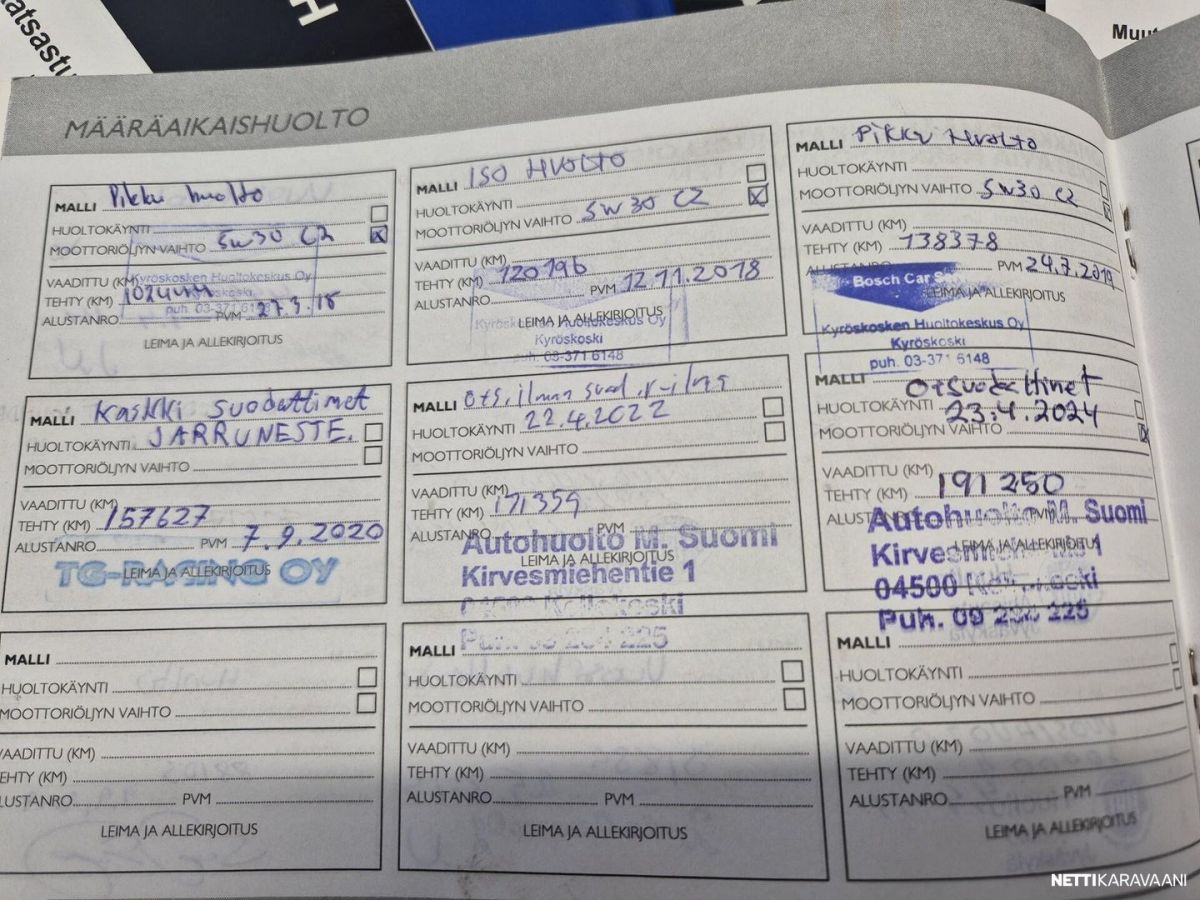 atsastu
H
Muut
MÄÄRÄAIKAISHUOLTO
MALLI Pikku huolto
HUOLTOKÄYNTI
MOOTTORIÖLJYN VAIHTO 5W30 C2
VAADITTU (KM)
Kyröskosken Huoltokeskus Oy
TEHTY (KM)
puh. 03-
ALUSTANRO PVM 27.3.18
LEIMA JA ALLEKIRJOITUS
MALLI ISO HUOLTO
HUOLTOKÄYNTI
MOOTTORIÖLJYN VAIHTO 5W30 C2
VAADITTU (KM)
TEHTY (KM) 120196
ALUSTANRO PVM 12.11.2018
LEIMA JA ALLEKIRJOITUS
Kyröskosken Huoltokeskus Oy
Kyröskoski
puh. 03-371 6148
MALLI Pikku Huolto
HUOLTOKÄYNTI
MOOTTORIÖLJYN VAIHTO 5W30 C2
VAADITTU (KM)
TEHTY (KM) 138378
ALUSTANRO PVM 24.7.2019
Bosch Car
LEIMA JA ALLEKIRJOITUS
Kyröskosken Huoltokeskus Oy
Kyröskoski
puh. 03-371 6148
MALLI kaikki suodattimet
HUOLTOKÄYNTI JARRUNESTE.
MOOTTORIÖLJYN VAIHTO
VAADITTU (KM)
TEHTY (KM) 157627
ALUSTANRO PVM 7.9.2020
TG-RACING OY
LEIMA JA ALLEKIRJOITUS
MALLI
HUOLTOKÄYNTI 22.4.2022
MOOTTORIÖLJYN VAIHTO
VAADITTU (KM)
TEHTY (KM) 171359
ALUSTANRO PVM
Autohuolto M. Suomi
LEIMA JA ALLEKIRJOITUS
Kirvesmiehentie 1
04500 Kellokoski
MALLI Ö+suodattimet
HUOLTOKÄYNTI 23.4.2024
MOOTTORIÖLJYN VAIHTO
VAADITTU (KM)
TEHTY (KM) 191250
ALUSTANRO PVM
Autohuolto M. Suomi
LEIMA JA ALLEKIRJOITUS
04500
Puh. 09
MALLI
HUOLTOKÄYNTI
MOOTTORIÖLJYN VAIHTO
VAADITTU (KM)
TEHTY (KM)
ALUSTANRO PVM
LEIMA JA ALLEKIRJOITUS
MALLI
HUOLTOKÄYNTI
MOOTTORIÖLJYN VAIHTO
VAADITTU (KM)
TEHTY (KM)
ALUSTANRO PVM
LEIMA JA ALLEKIRJOITUS
MALLI
HUOLTOKÄYNTI
MOOTTORIÖLJYN VAIHTO
VAADITTU (KM)
TEHTY (KM)
ALUSTANRO PVM
LEIMA JA ALLEKIRJOITUS
NETTIKARAVAANI